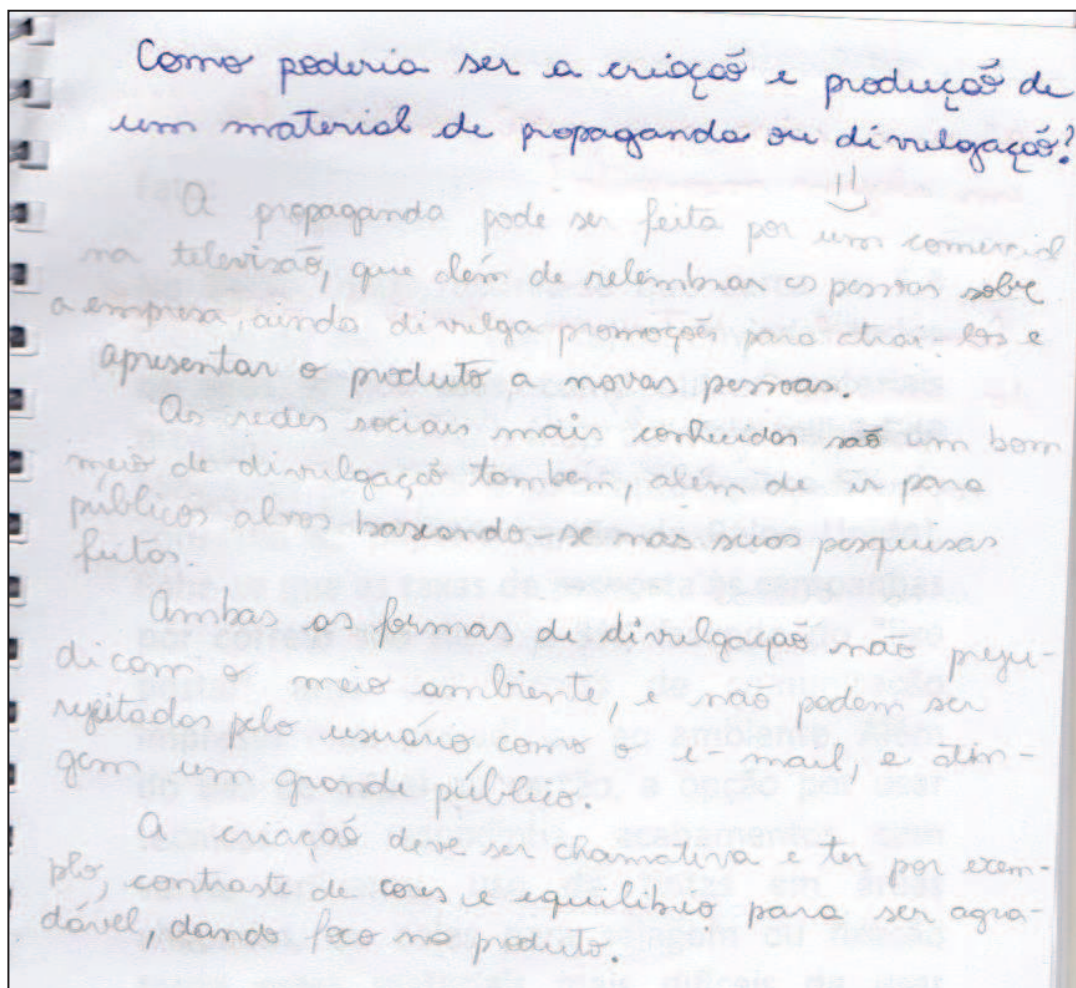 Como poderia ser a criação e produção de
um material de propaganda ou divulgação?
A propaganda pode ser feita por um comercial
na televisão, que além de relembrar as pessoas sobre
a empresa, ainda divulga promoções para atrai-los e
apresentar o produto a novas pessoas.
As redes sociais mais conhecidas são um bom
meio de divulgação também, além de ir para
públicos alvos baseando-se nas suas pesquisas
feitas.
Ambas as formas de divulgação não preju-
dicam o meio ambiente, e não podem ser
rejeitadas pelo usuário como o e-mail, e atin-
gem um grande público.
A criação deve ser chamativa e ter por exem-
plo, contraste de cores e equilíbrio para ser agra-
dável, dando foco no produto.